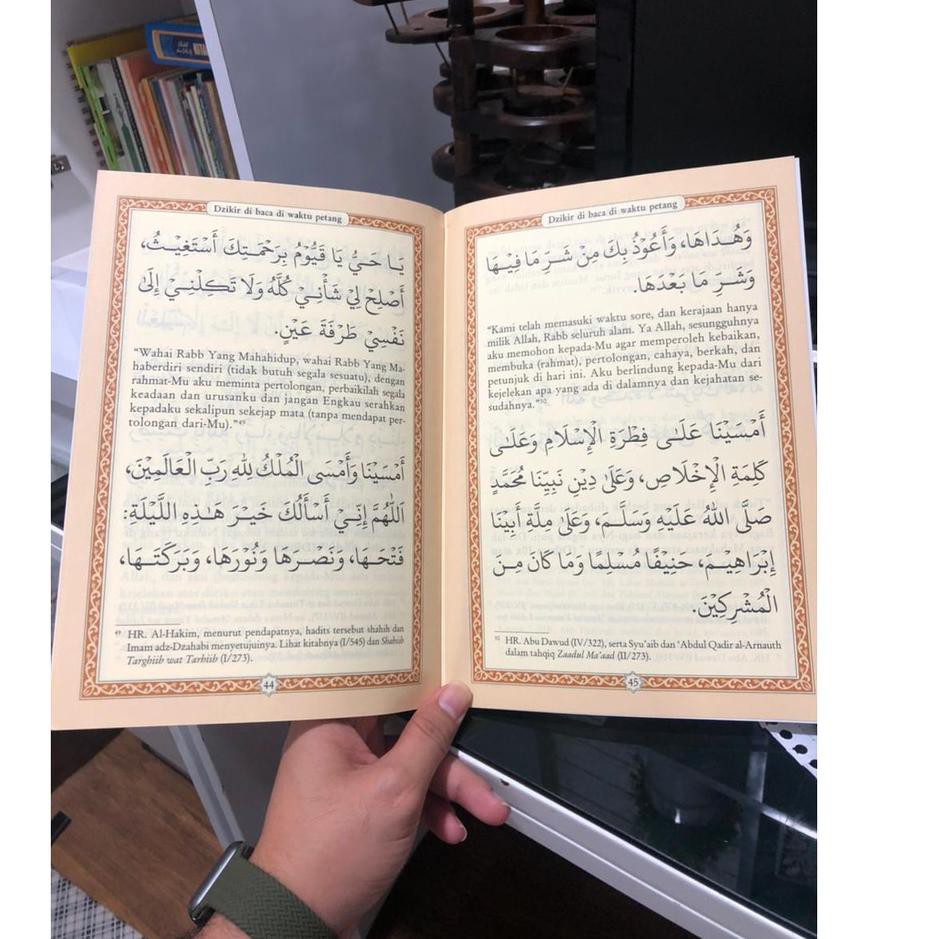 Dzikir di baca di waktu petang
يَا حَيُّ يَا قَيُّوْمُ بِرَحْمَتِكَ أَسْتَغِيْثُ،
أَصْلِحْ لِيْ شَأْنِيْ كُلَّهُ وَلَا تَكِلْنِيْ إِلَىٰ
نَفْسِيْ طَرْفَةَ عَيْنٍ.
"Wahai Rabb Yang Mahahidup, wahai Rabb Yang Ma-
haberdiri sendiri (tidak butuh segala sesuatu), dengan
rahmat-Mu aku meminta pertolongan, perbaikilah segala
keadaan dan urusanku dan jangan Engkau serahkan
kepadaku sekalipun sekejap mata (tanpa mendapat per-
tolongan dari-Mu)."⁴⁹
أَمْسَيْنَا وَأَمْسَى الْمُلْكُ لِلَّهِ رَبِّ الْعَالَمِيْنَ،
اَللَّهُمَّ إِنِّيْ أَسْأَلُكَ خَيْرَ هَـٰذِهِ اللَّيْلَةِ:
فَتْحَهَا، وَنَصْرَهَا وَنُوْرَهَا، وَبَرَكَتَهَا،
⁴⁹ HR. Al-Hakim, menurut pendapatnya, hadits tersebut shahih dan
Imam adz-Dzahabi menyetujuinya. Lihat kitabnya (I/545) dan Shahih
Targhiib wat Tarhiib (I/273).
44
Dzikir di baca di waktu petang
وَهُدَاهَا، وَأَعُوْذُ بِكَ مِنْ شَرِّ مَا فِيْهَا
وَشَرِّ مَا بَعْدَهَا.
"Kami telah memasuki waktu sore, dan kerajaan hanya
milik Allah, Rabb seluruh alam. Ya Allah, sesungguhnya
aku memohon kepada-Mu agar memperoleh kebaikan,
membuka (rahmat), pertolongan, cahaya, berkah, dan
petunjuk di hari ini. Aku berlindung kepada-Mu dari
kejelekan apa yang ada di dalamnya dan kejahatan se-
sudahnya."⁵⁰
أَمْسَيْنَا عَلَىٰ فِطْرَةِ الْإِسْلَامِ وَعَلَىٰ
كَلِمَةِ الْإِخْلَاصِ، وَعَلَىٰ دِيْنِ نَبِيِّنَا مُحَمَّدٍ
صَلَّى اللهُ عَلَيْهِ وَسَلَّمَ، وَعَلَىٰ مِلَّةِ أَبِيْنَا
إِبْرَاهِيْمَ، حَنِيْفًا مُسْلِمًا وَمَا كَانَ مِنَ
الْمُشْرِكِيْنَ.
⁵⁰ HR. Abu Dawud (IV/322), serta Syu'aib dan 'Abdul Qadir al-Arnauth
dalam tahqiq Zaadul Ma'aad (II/273).
45